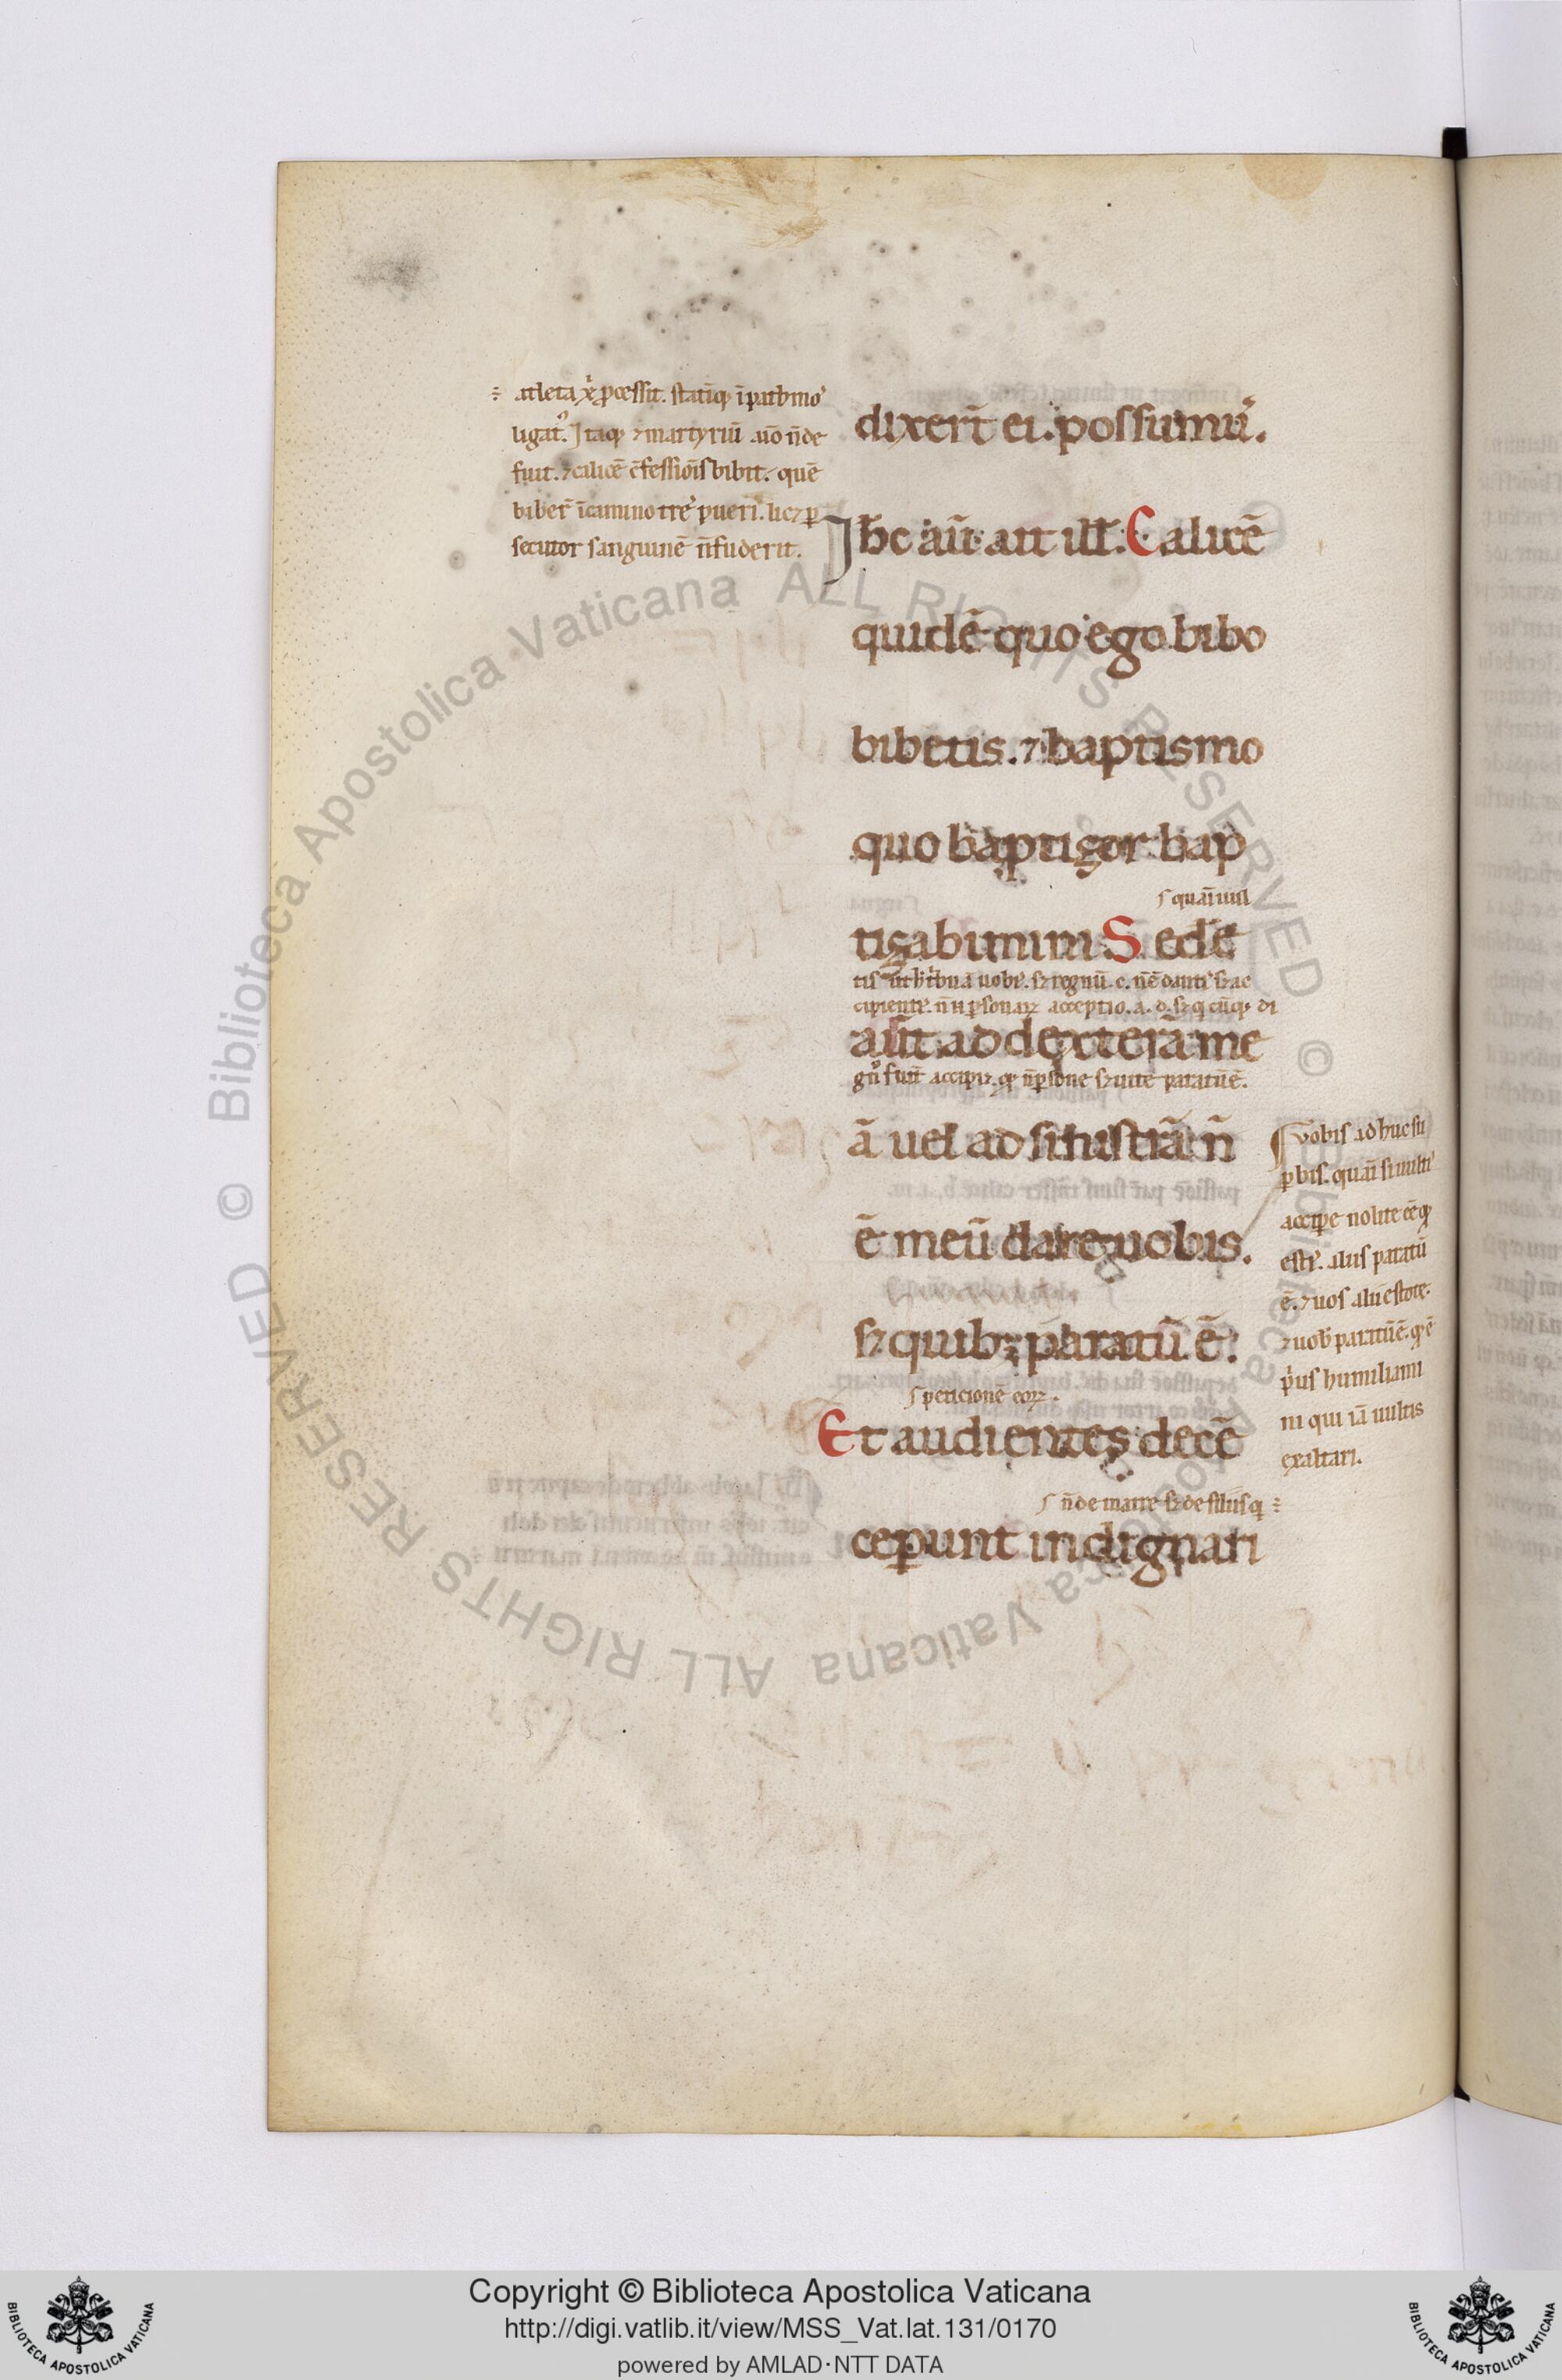 ÷ atleta xp̄i p̄cessit. statīq; ī pathmo'
ligat᷒. Itaq; ⁊ martyriū aīo n̄ de
fuit. ⁊ calicē c̄fessiōis bibit. quē
biber̄ ī camino tre᷒ pueri. lic⁊ p̲
secutor sanguinē n̄ fuderit.
dixer̄t ei. possumu᷒.
Ih̄c aū ait ill̄. Calicē
quidē quo ego bibo
bibetis. ⁊ baptismo
quo baptizor bap
tizabimini. Sede᷒
aūt ad dexterā me
cipiente᷒. n̄ n̄ p̲sonaꝝ acceptio. a. d. sꝫ q̄cūq; di
ā uel ad sinistrā n̄
ē meū dare uobis.
sꝫ quibꝫ paratū ē.
s peticionē eoꝝ.
Et audientes decē
s n̄ de matre sꝫ de filiis q ÷
cep̲unt indignari
uobis adhuc su
p̲bis. quaī si multi
accip̲e nolite eē q;
estis. aliis paratū
ē. ⁊ uos alii estote.
⁊ uob̄ paratū ē. q; ē
p'us humiliami
ni qui iā uultis
exaltari.
Copyright © Biblioteca Apostolica Vaticana
http://digi.vatlib.it/view/MSS_Vat.lat.131/0170
powered by AMLAD·NTT DATA
BIBLIOTECA APOSTOLICA VATICANA
BIBLIOTECA APOSTOLICA VATICANA
© Biblioteca Apostolica Vaticana ALL RIGHTS RESERVED
© Biblioteca Apostolica Vaticana ALL RIGHTS RESERVED